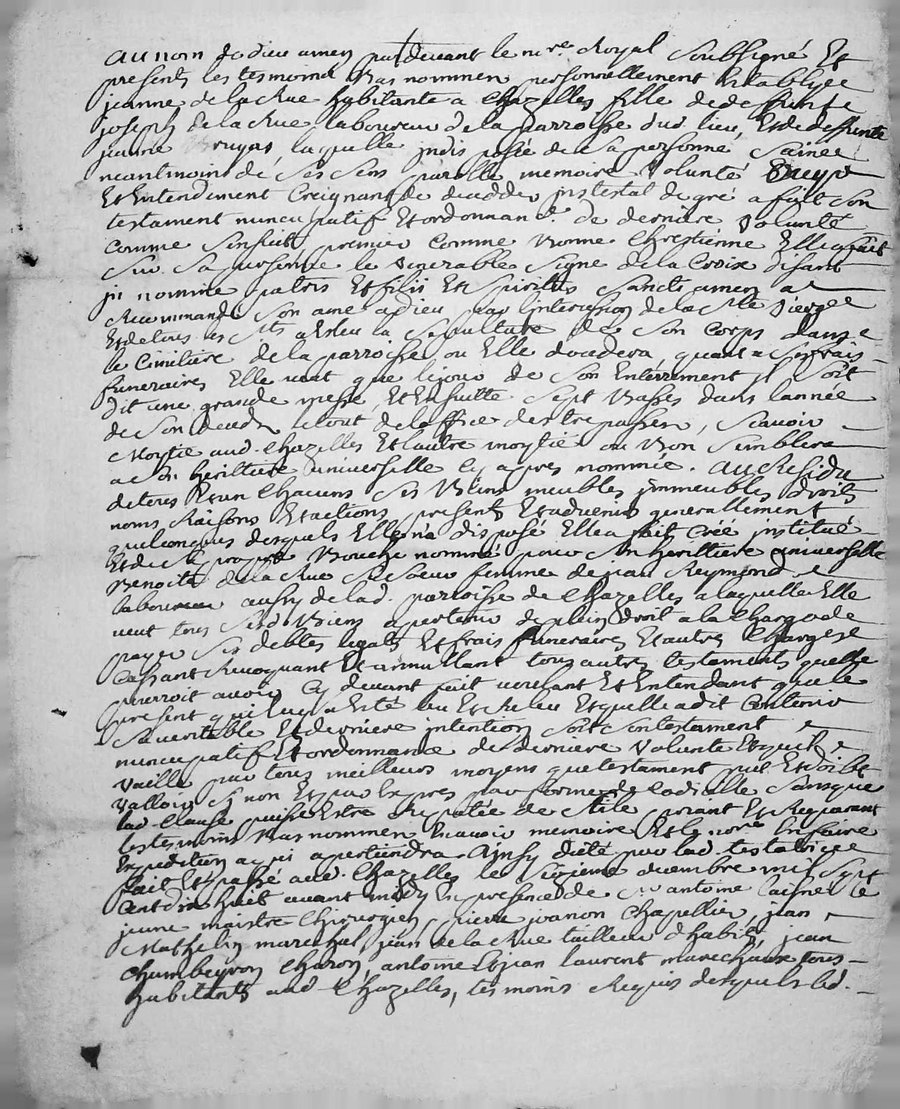 au nom de dieu amen pardevant le no.re Royal soubsigné et
presents les tesmoins bas nommen personnellement establye
jeanne de la Rue habitante a Chazelles fille de deffunt
joseph de la Rue laboureur de la parroisse dud. lieu, et de deffunte
jeanne laquelle indisposée de sa personne sainee
neantmoins de ses sens parolle memoire volunté
et entendement Creignant de decedder intestat de gré a fait son
testament nuncupatif et ordonnance de derniere volunté
comme sensuit, premier comme bonne Chrestienne Elle a fait
sur sa personne le venerable signe de la Croix disant
in nomine patris et filii et spiritus sancti amen a
Recommandé son ame a dieu par lintercession de la s.te vierge
et de tous les s.ts a esleu la sepulture de son corps dans
le Cimitiere de la parroisse ou Elle deceddera, quant a ses frais
funeraires Elle veut que le jour de son Enterrement il soit
dit une grande messe, et Ensuitte sept basses dans lannée
de son decedz le tout de loffice des trepassés, scavoir
moytié aud. Chazelles et lautre moytié ou bon semblera
a son herittiere universelle cy apres nommée. au Residu
de tous et un chacuns ses biens meubles immeubles droits
noms Raisons et actions presents et advenir generallement
quelconques desquels Elle n'a disposé Elle a fait créé institué
et de sa propre bouche nommé pour son herittiere universelle
benoite de la Rue sa soeur femme de jean Reymond
laboureur aussy de lad. parroisse de Chazelles a laquelle Elle
veut tous sesd. biens apartenir de plein droit a la charge de
payer ses debtes legats et frais funeraires et autres charges
Cassant Revoquant et annullant tous autres testaments quelle
pourroit avoir cy devant fait voulant et Entendant que le
present qui luy a esté leu et Releu et quelle a dit contenir
sa veritable et derniere intention soit son testament
nuncupatif et ordonnance de derniere volunté et quil
vaille par tous meilleurs moyens que testament peut et doibt
valloir sy non et par Expres par forme de codicille sans que
lad. clause puisse estre Reputée de stile priant et Requerant
tesmoins bas nommen davoir memoire et le no.re En faire
Expedition a qui apartiendra. Ainsy dicté par lad. testatrice
fait et passé aud. Chazelles le decembre mil sept
cent dix huict avant midy En presence de s.r antoine le
jeune maistre chirurgien, pierre chapellier, jean
Mathelin marechal, jean de la Rue tailleur dhabits, jean
chambeyron charon, antoine et jean laurent marechaux tous
habitants aud. Chazelles, tesmoins Requis desquels led.